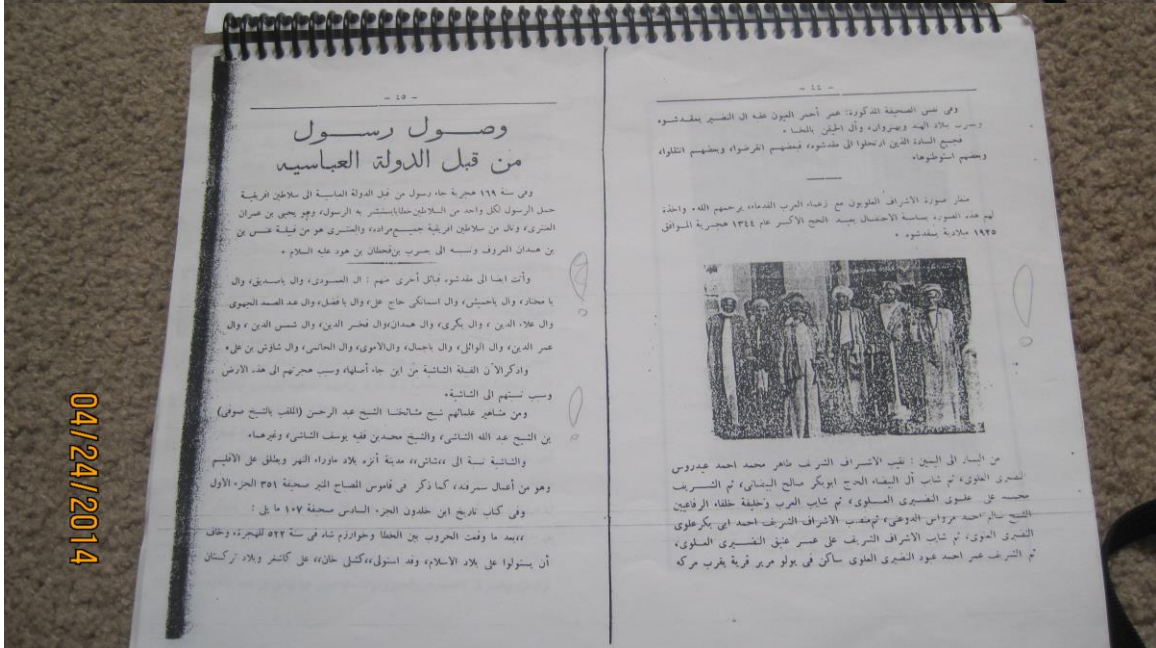 - ٤٤ -
وفى نفس الصحيفة المذكورة: عمر أحمر العيون عقبه ال النضير بمقدشوه
وبسرت بلاد الهند وبهنزوان، وآل الجيلن بالمخا •
فجميع السادة الذين ارتحلوا الى مقدشوه، فبعضهم انقرضوا، وبعضهم انتقلوا،
وبعضهم استوطنوها•
صورة الاشراف العلويون مع زعماء العرب القدماء، يرحمهم الله• واخذة
لهم هذه الصورة بمناسبة الاحتفال بعيد الحج الاكبر عام ١٣٤٤ هجرية الموافق
١٩٢٥ ميلادية بمقدشوه •
من اليسار الى اليمين : نقيب الاشراف الشريف طاهر محمد احمد عيدروس
النضيرى العلوى، ثم شايب آل البيضاء الحج ابوبكر صالح البيضانى، ثم الشريف
محمد على علوى النضيرى العلوى، ثم شايب العرب وخليفة خلفاء الرفاعيين
الشيخ سالم احمد مرواس الدوعنى، ثم منصب الاشراف الشريف احمد ابى بكر علوى
النضيرى العلوى، ثم شايب الاشراف الشريف على عمر عتيق النضيرى العلوى،
ثم الشريف عمر احمد عبود النضيرى العلوى ساكن فى بولو مرير قرية بقرب مركه
- ٤٥ -
وصول رسول
من قبل الدولة العباسيه
وفى سنة ١٦٩ هجرية جاء رسول من قبل الدولة العباسية الى سلاطين افريقية
حمل الرسول لكل واحد من السلاطين خطابا يستبشر به الرسول، وهو يحيى بن عمران
العنزى، ونال من سلاطين افريقية جميع مراده، والعنزى هو من قبيلة عنس بن
بن همدان المعروف ونسبه الى يعرب بن قحطان بن هود عليه السلام •
وأتت ايضا الى مقدشوه قبائل أخرى منهم : ال العمودى، وال باصديق، وال
با مختار، وال باحميش، وال اسمانكى حاج على، وال بافضل، وال عبد الصمد الجهوى
وال علاء الدين ، وال بكرى، وال همدان، وال فخر الدين، وال شمس الدين ، وال
عمر الدين، وال الوائلى، وال باجمال، وال الاموى، وال الحاتمى، وال شاوش بن على•
واذكر الآن القبيلة الشاشية من اين جاء أصلها، وسبب هجرتهم الى هذه الارض
وسبب نسبتهم الى الشاشية•
ومن مشاهير علمائهم شيخ مشائخنا الشيخ عبد الرحمن (الملقب بالشيخ صوفى)
بن الشيخ عبد الله الشاشى، والشيخ محمد بن فقيه يوسف الشاشى، وغيرهما•
والشاشية نسبة الى ,,شاش,, مدينة أنزه بلاد ماوراء النهر ويطلق على الاقليم
وهو من أعمال سمرقند، كما ذكر فى قاموس المصباح المنير صحيفة ٣٥١ الجزء الاول
وفى كتاب تاريخ ابن خلدون الجزء السادس صحيفة ١٠٧ ما يلى :
,,بعد ما وقعت الحروب بين الخطا وخوارزم شاه فى سنة ٥٢٢ للهجرة، وخاف
أن يستولوا على بلاد الاسلام، وقد استولى ,,كشلى خان,, على كاشغر وبلاد تركستان
04/24/2014